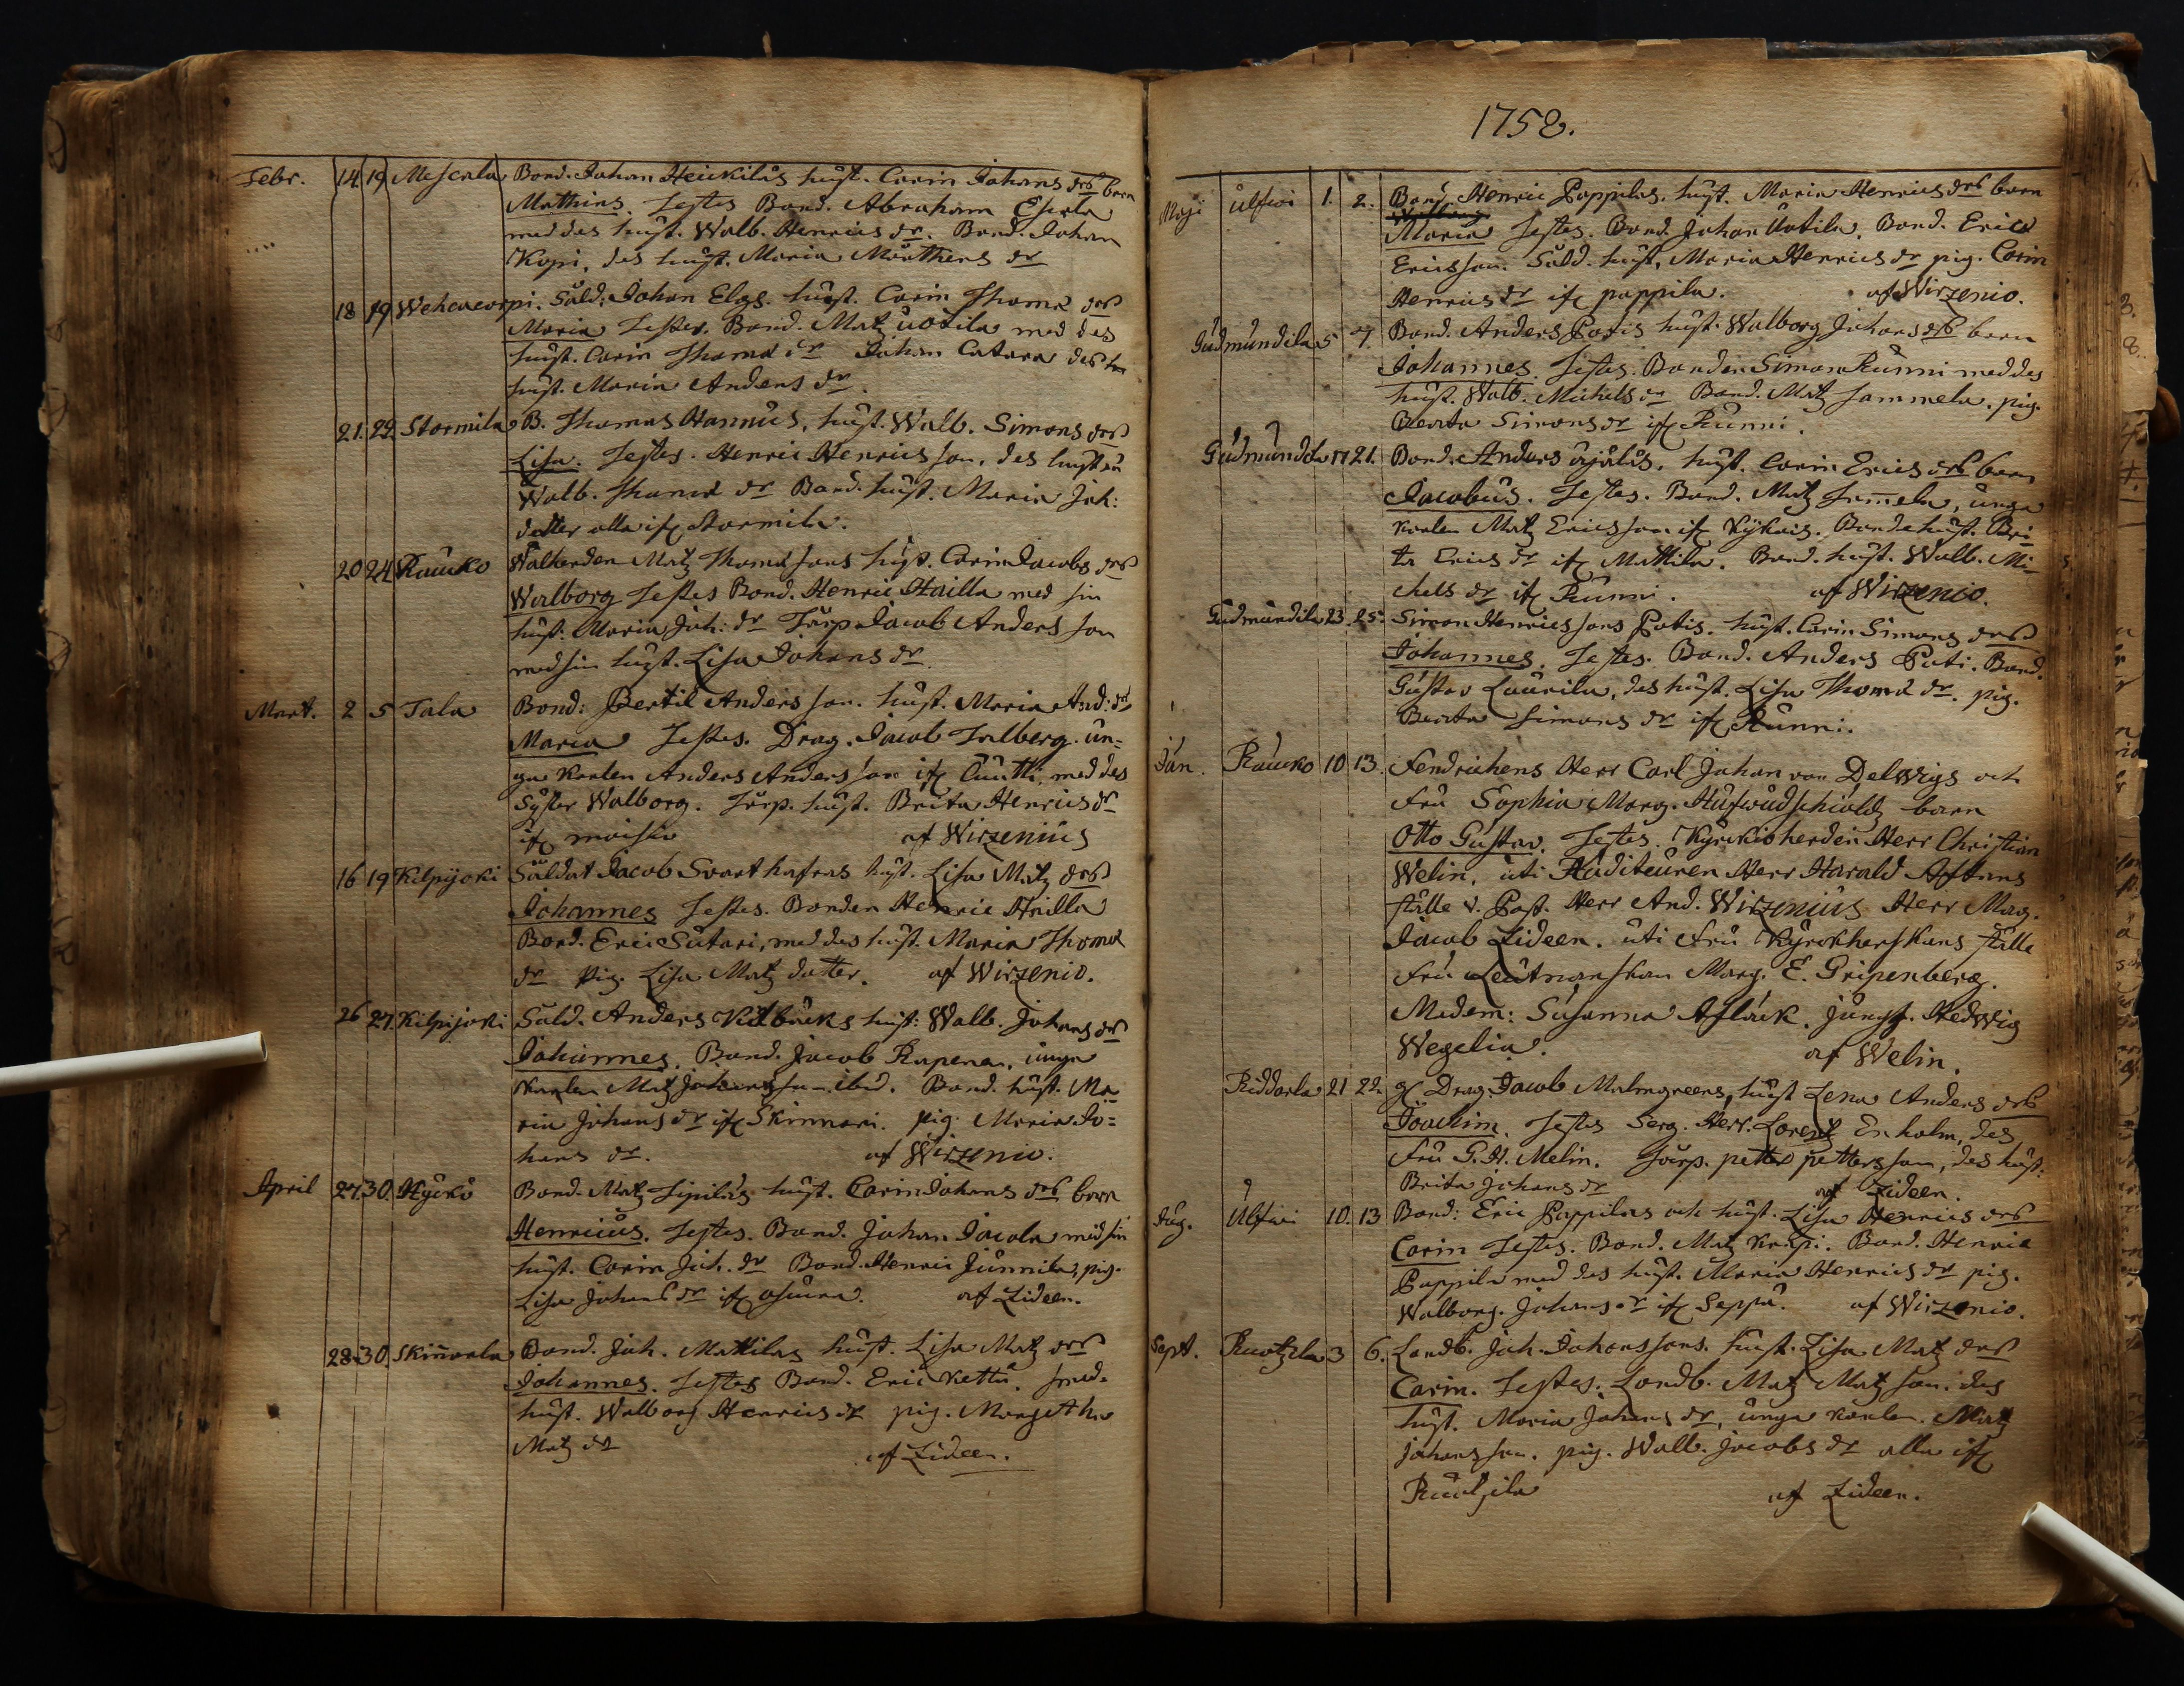 Febr. 14. 19 Mescala Bond. Johan Heickiläs hust. Carin Johans drs barn
Mathias. Testes Bond. Abraham Eskola
med des hust. Walb. Henrics dr. Bond. Johan
Kopi, des hust. Maria Mårthens dr
18 19 Wehcacorpi. Sold. Johan Elgs. hust. Carin Thomæ drs
Maria Testes. Bond. Matz Uotila med des
hust. Carin Thomæ dr Johan Catara des
hust. Maria Anders dr.
21. 22. Stormila B. Thomas Hannus, hust. Walb. Simons drs
Lisa. Testes. Henric Henricsson, des hustru
Walb. Thomæ dr Bond. hust. Maria Joh:
dotter alla ifr Stormila.
20 24 Rauko Walherden Matz Thomæ sons hust. Carin Jacobs drs
Walborg Testes Bond. Henric Hailla med sin
hust. Maria Joh: dr Torp. Jacob Anders son
med sin hust. Lisa Johans dr.
Mart. 2 5 Tala Bond: Bertil Anders son. hust. Maria And: drs
Maria Testes. Drag. Jacob Talberg. un=
ga Karlen Anders Anders son ifr Cuutti med des
Syster Walborg. Torp. hust. Brita Henrics dr
ifr moisio af Wirzenius
16 19 Kilpijoki Soldat Jacob Svarthafras hust. Lisa Matz drs
Johannes Testes. Bonden Henric Heilla
Bond. Eric Sutari, med des hust. Maria Thomæ
dr Pig. Lisa Matz dotter. af Wirzenio.
26 27. Kilpijoki Sold. Anders Kilbucks hust: Walb. Johans dr
Johannes. Bond. Jacob Rapena, unga
Karlen Matz Johansson ibid. Bond. hust. Ma
ria Johans dr ifr Skinnari. pig Maria Jo=
hans dr. af Wirzenio.
April 27. 30. Hyrkö Bond. Matz Sipiläs hust. Carin Johans drs barn
Henricus. Testes. Bond. Johan Jacola med sin
hust. Carin Joh. dr Bond. Henric Junnila, pig.
Lisa Johans dr ifr af Lideen.
28. 30. Skinnarla Bond. Joh. Mattilas hust. Lisa Matz drs
Johannes. Testes Bond. Eric Kettu. smed.
hust. Walborg Henrics dr pig. Margetha
Matz dr af Lideen.
1758.
Maji Ulfwi 1. 2. Bond. Henric Pappilas. hust. Maria Henrics drs barn
Maria Testes. Bond. Johan Uotila. Bond. Erics
Ericsson. Sold. hust. Maria Henrics dr pig. Carin
Henrics dr ifr pappila. af Wirzenio.
Gudmundila 5 7. Bond. Anders Potis hust. Walborg Johans drs barn
Johannes. Testes. Bonden Simon Runni med des
hust. Walb. Michels dr Bond. Matz Sammela. pig.
Beata Simons dr ifr Runni.
Gudmundila 17 21. Bond. Anders äijäläs. hust. Carin Erics drs barn
Jacobus. Testes. Bond. Matz Sammela, unga
karlen Matz Ericsson ifr Kykois. Bonde hust. Bri=
ta Erics dr ifr Mattila. Bond. hust. Walb. Mi=
chels dr ifr Runni. af Wirzenio.
Gudmundila 23. 25. Simon Henrics sons Potis. hust. Carin Simons drs
Johannes. Testes. Bond. Anders Poti. Bond.
Gustav Laurila, des hust. Lisa Thomæ dr. pig.
Beata Simons dr ifr Runni.
Jun. Rauko 10 13. Fendrichens Herr Carl Johan von Delwigs och
Fru Sophia Marg. Hufwudschiölds barn
Otto Gustav. Testes. Kyrckioherden Herr Christian
Welin. uti Auditeuren Herr Harald
ställe v. Past. Herr And. Wirzenius Herr Mag.
Jacob Lideen. uti Fru Kyrckherskans ställe
Fru Leutnanskan Marg. E. Gripenberg.
Madem: Susanna Aflæk. Jungf. Hedwig
Wegelia. af Welin.
Riddarla 21 22. Drag. Jacob Malmgreens, hust Lena Anders drs
Joachim. Testes Serg. Herr. Lorentz Enholm, des
Fru G. H. Melin. Torp. petter petters son, des hust:
Brita Johans dr af Lideen.
Aug. Ulfwi 10. 13 Bond: Eric Pappilas och hust. Lisa Henrics drs
Carin Testes. Bond. Matz Krapi. Bond. Henric
Pappila med des hust. Maria Henrics dr pig.
Walborg. Johans dr ifr Seppä. af Wirzenio.
Sept. Ruotzila 3 6. Landb. Joh. Johanssons. hust. Lisa Matz drs
Carin. Testes. Landb. Matz Matz son. des
hust. Maria Johans dr, unga karlen. Matz
Johansson. pig. Walb. Jacobs dr alla ifr
Ruotzila af Lideen.